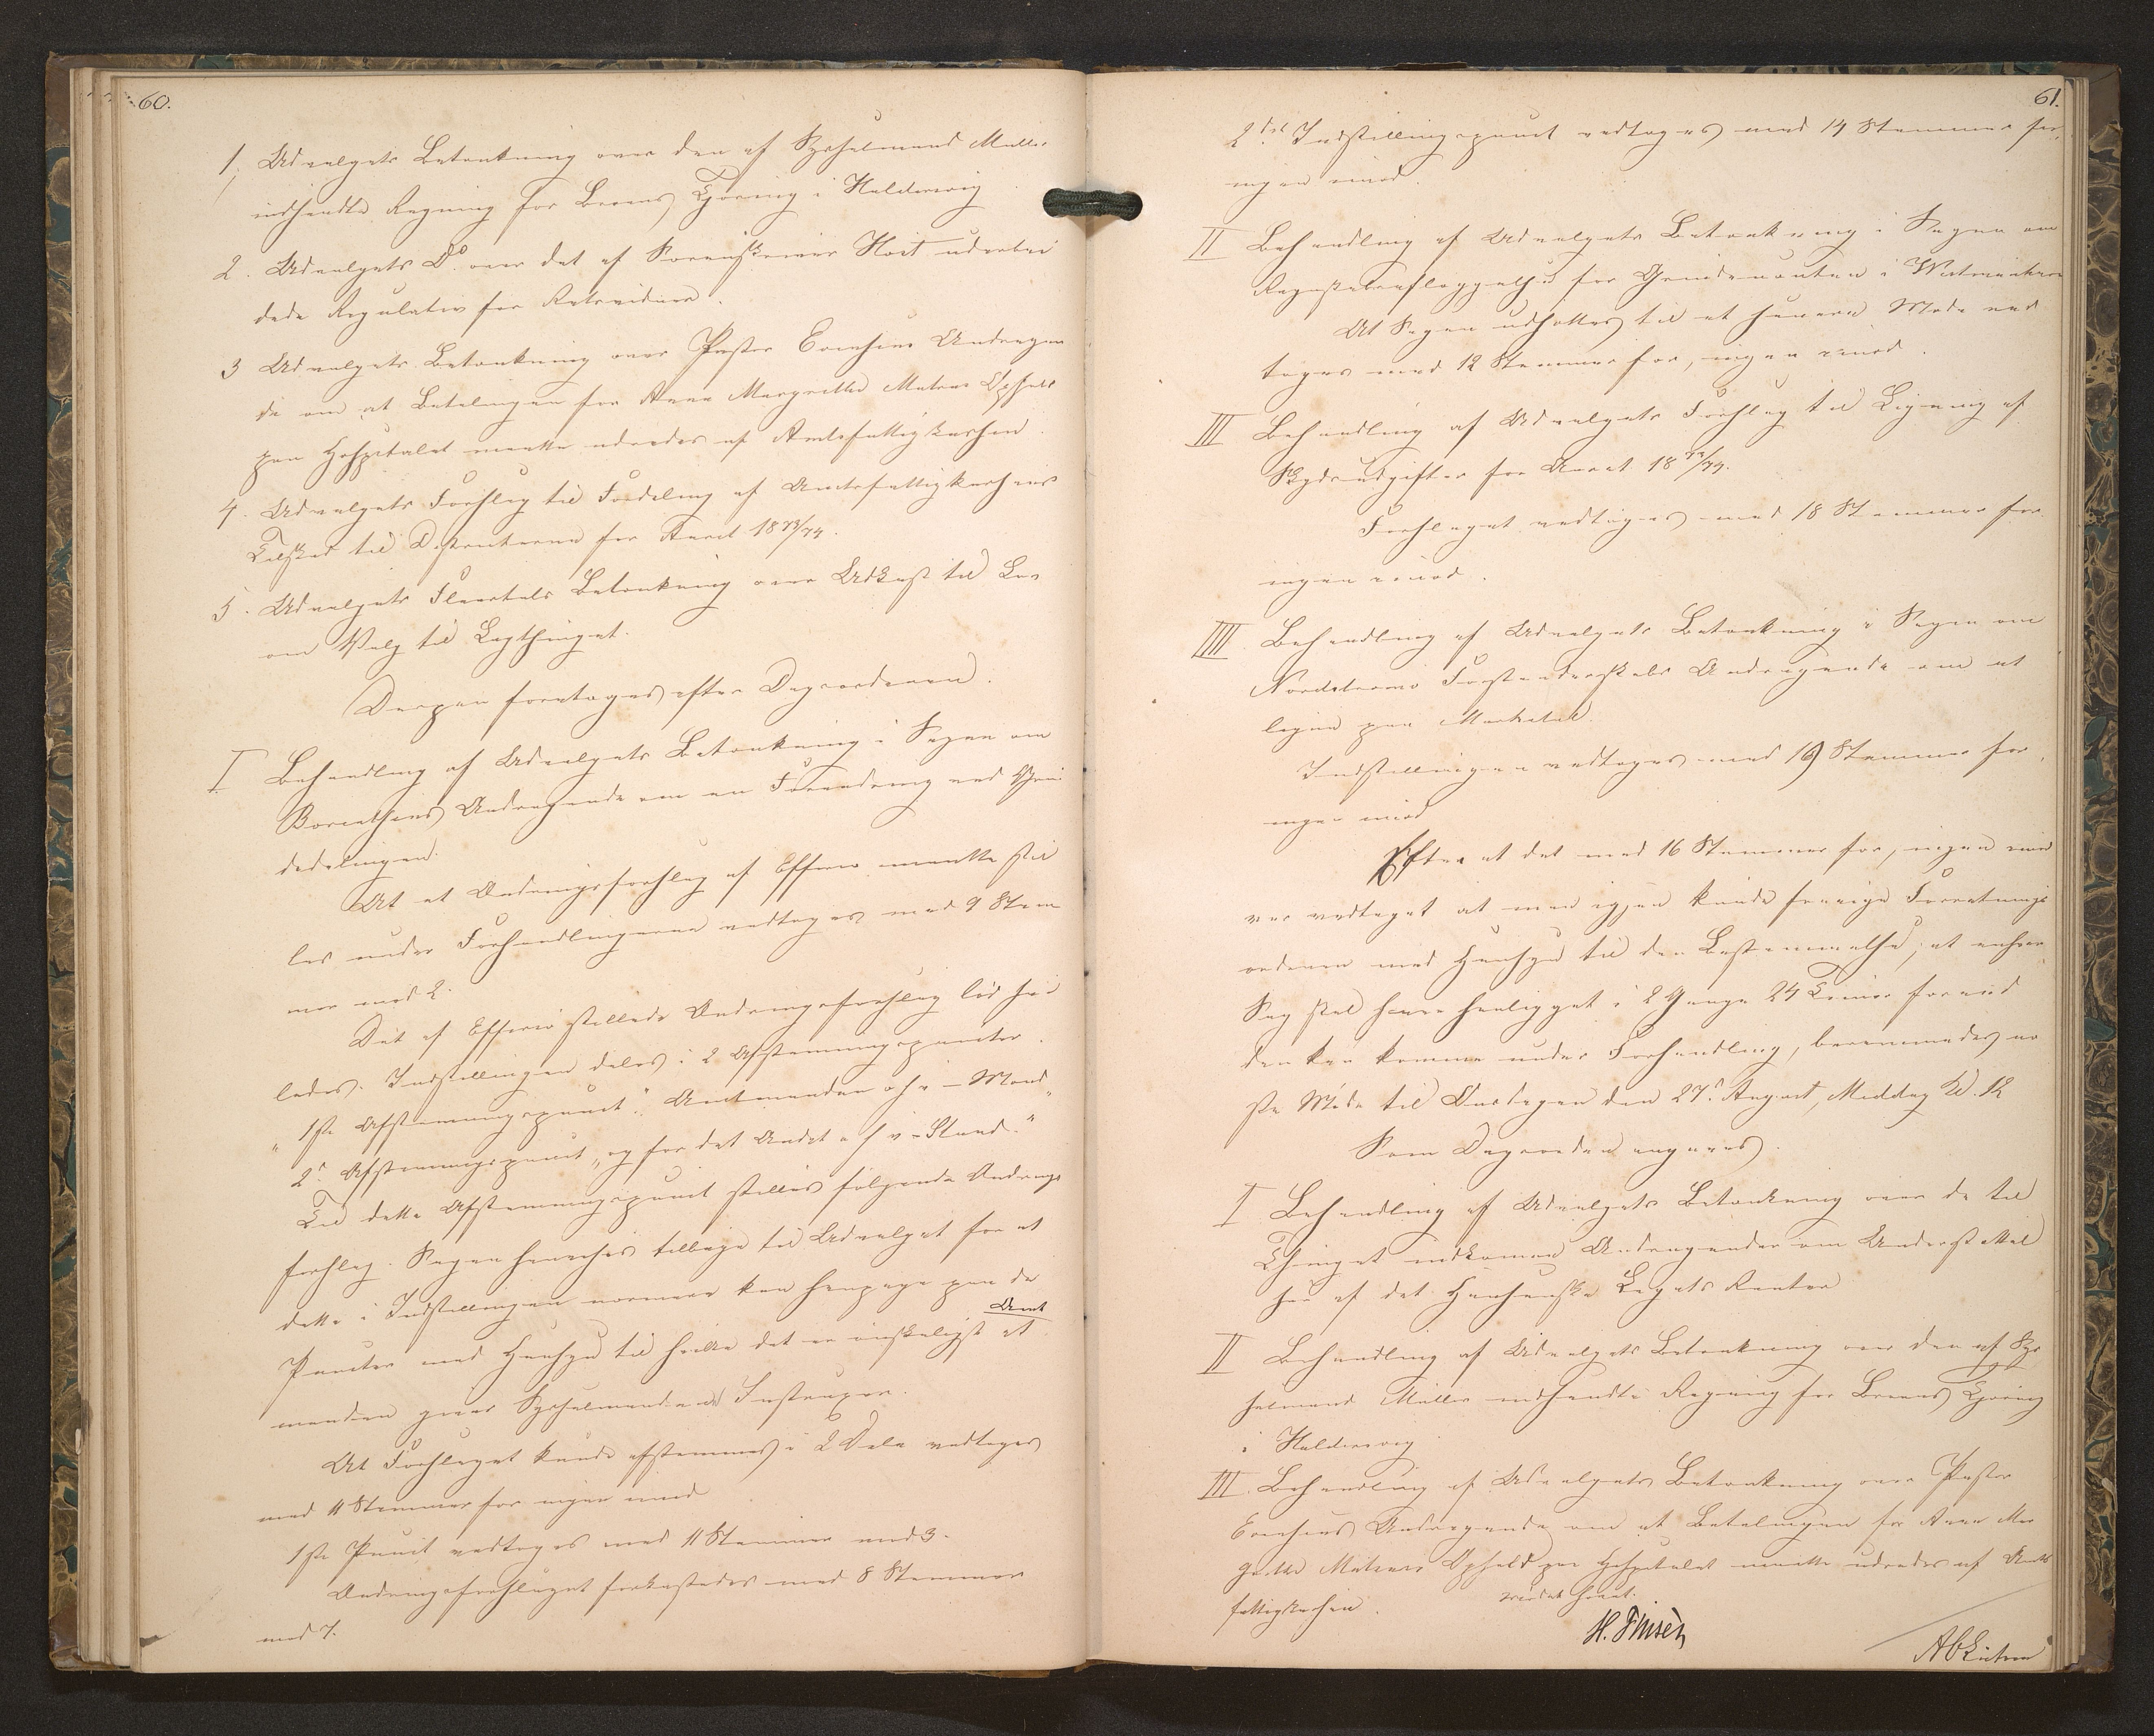 60.
1, Udvalgets Betænkning over den af Sysselmand Müller
indsendte Regning for Breves Føring i Halderevig
2. Udvalgets Do. over det af Sorenskriver Høst udarbei
dede Regulativ for Retsvidner.
3 Udvalgets Betænkning over Pastor Evensens Andragen
de om at Betalingen for Anna Margrethe Matras Ophold
paa Hospitalet maatte udredes af Amtsfattigkassen.
4. Udvalgets Forslag til Fordeling af Amtsfattigkassens
Tilskud til Districterne for Aaret 1873/74.
5. Udvalgets Fleertals Betænkning over Udkast til Lov
om Valg til Lagthinget.
Derpaa foretoges efter Dagsordenen.
I Behandling af Udvalgets Betænkning i Sagen om
Boreathens Andragende om en Forandring ved Grin
dedelingen.
At et Ændringsforslag af Effersø maatte stil
les under Forhandlingerne vedtoges med 9 Stem
mer mod 2.
Det af Effersø stillede Ændringsforslag lød saa
ledes: Indstillingen deles i 2 Afstemningspuncter.
" 1ste Afstemningspunct": Amtmanden o s v – Mand"
2d Afstemningspunct „og for det Andet o s v – Stand."
Til dette Afstemningspunct stilles følgende Ændrings
forslag. Sagen henvises tilbage til Udvalget for at
dette i Indstillingen nærmere kan henpege paa de
Puncter med Hensyn til hvilke det er ønskeligt at Amt
manden giver Sysselmændene Instruxer.
At Forslaget kunde afstemmes i 2 Dele vedtoges
med 11 Stemmer for ingen imod
1ste Punct vedtoges med 11 Stemmer mod 3.
Ændringsforslaget forkastedes med 8 Stemmer
mod 7.
61.
2det Indstillingspunct vedtoges med 14 Stemmer for,
ingen imod.
II Behandling af Udvalgets Betænkning i Sagen om
Regnskabsaflæggelse for Grindevaaten i Vestmanhavn
At Sagen udsættes til et senere Møde ved
toges med 12 Stemmer for, ingen imod.
III Behandling af Udvalgets Forslag til Ligning af
Skydsudgifter for Aaret 1873/74.
Forslaget vedtoges med 18 Stemmer for
ingen imod.
IIII Behandling af Udvalgets Betænkning i Sagen om
Nordstrømø Forstanderskabs Andragende om at
ligne paa Marketal.
Indstillingen vedtoges med 19 Stemmer for,
ingen imod
Efter at det med 16 Stemmer for, ingen imod
var vedtaget at man igjen kunde fravige Forretnings
ordenen med Hensyn til den Bestemmelse, at enhver
Sag skal have henligget i 2 Gange 24 Timer forend
den kan komme under Forhandling, berammedes næ
ste Møde til Onsdagen den 27d August, Middag Kl. 12
Som Dagsorden angaves.
I Behandling af Udvalgets Betænkning over de til
Thinget indkomne Andragender om Understøttel
se af det Hansenske Legats Renter
II Behandling af Udvalgets Betænkning over den af Sys
selmand Müller indsendte Regning for Breves Føring
i Halderevig
III. Behandling af Udvalgets Betænkning over Pastor
Evensens Andragende om at Betalingen for Anna Mar
grethe Matrases Ophold paa Hospitalet maatte udredes af Amts
fattigkassen.
Mødet hævet.
H. Finsen